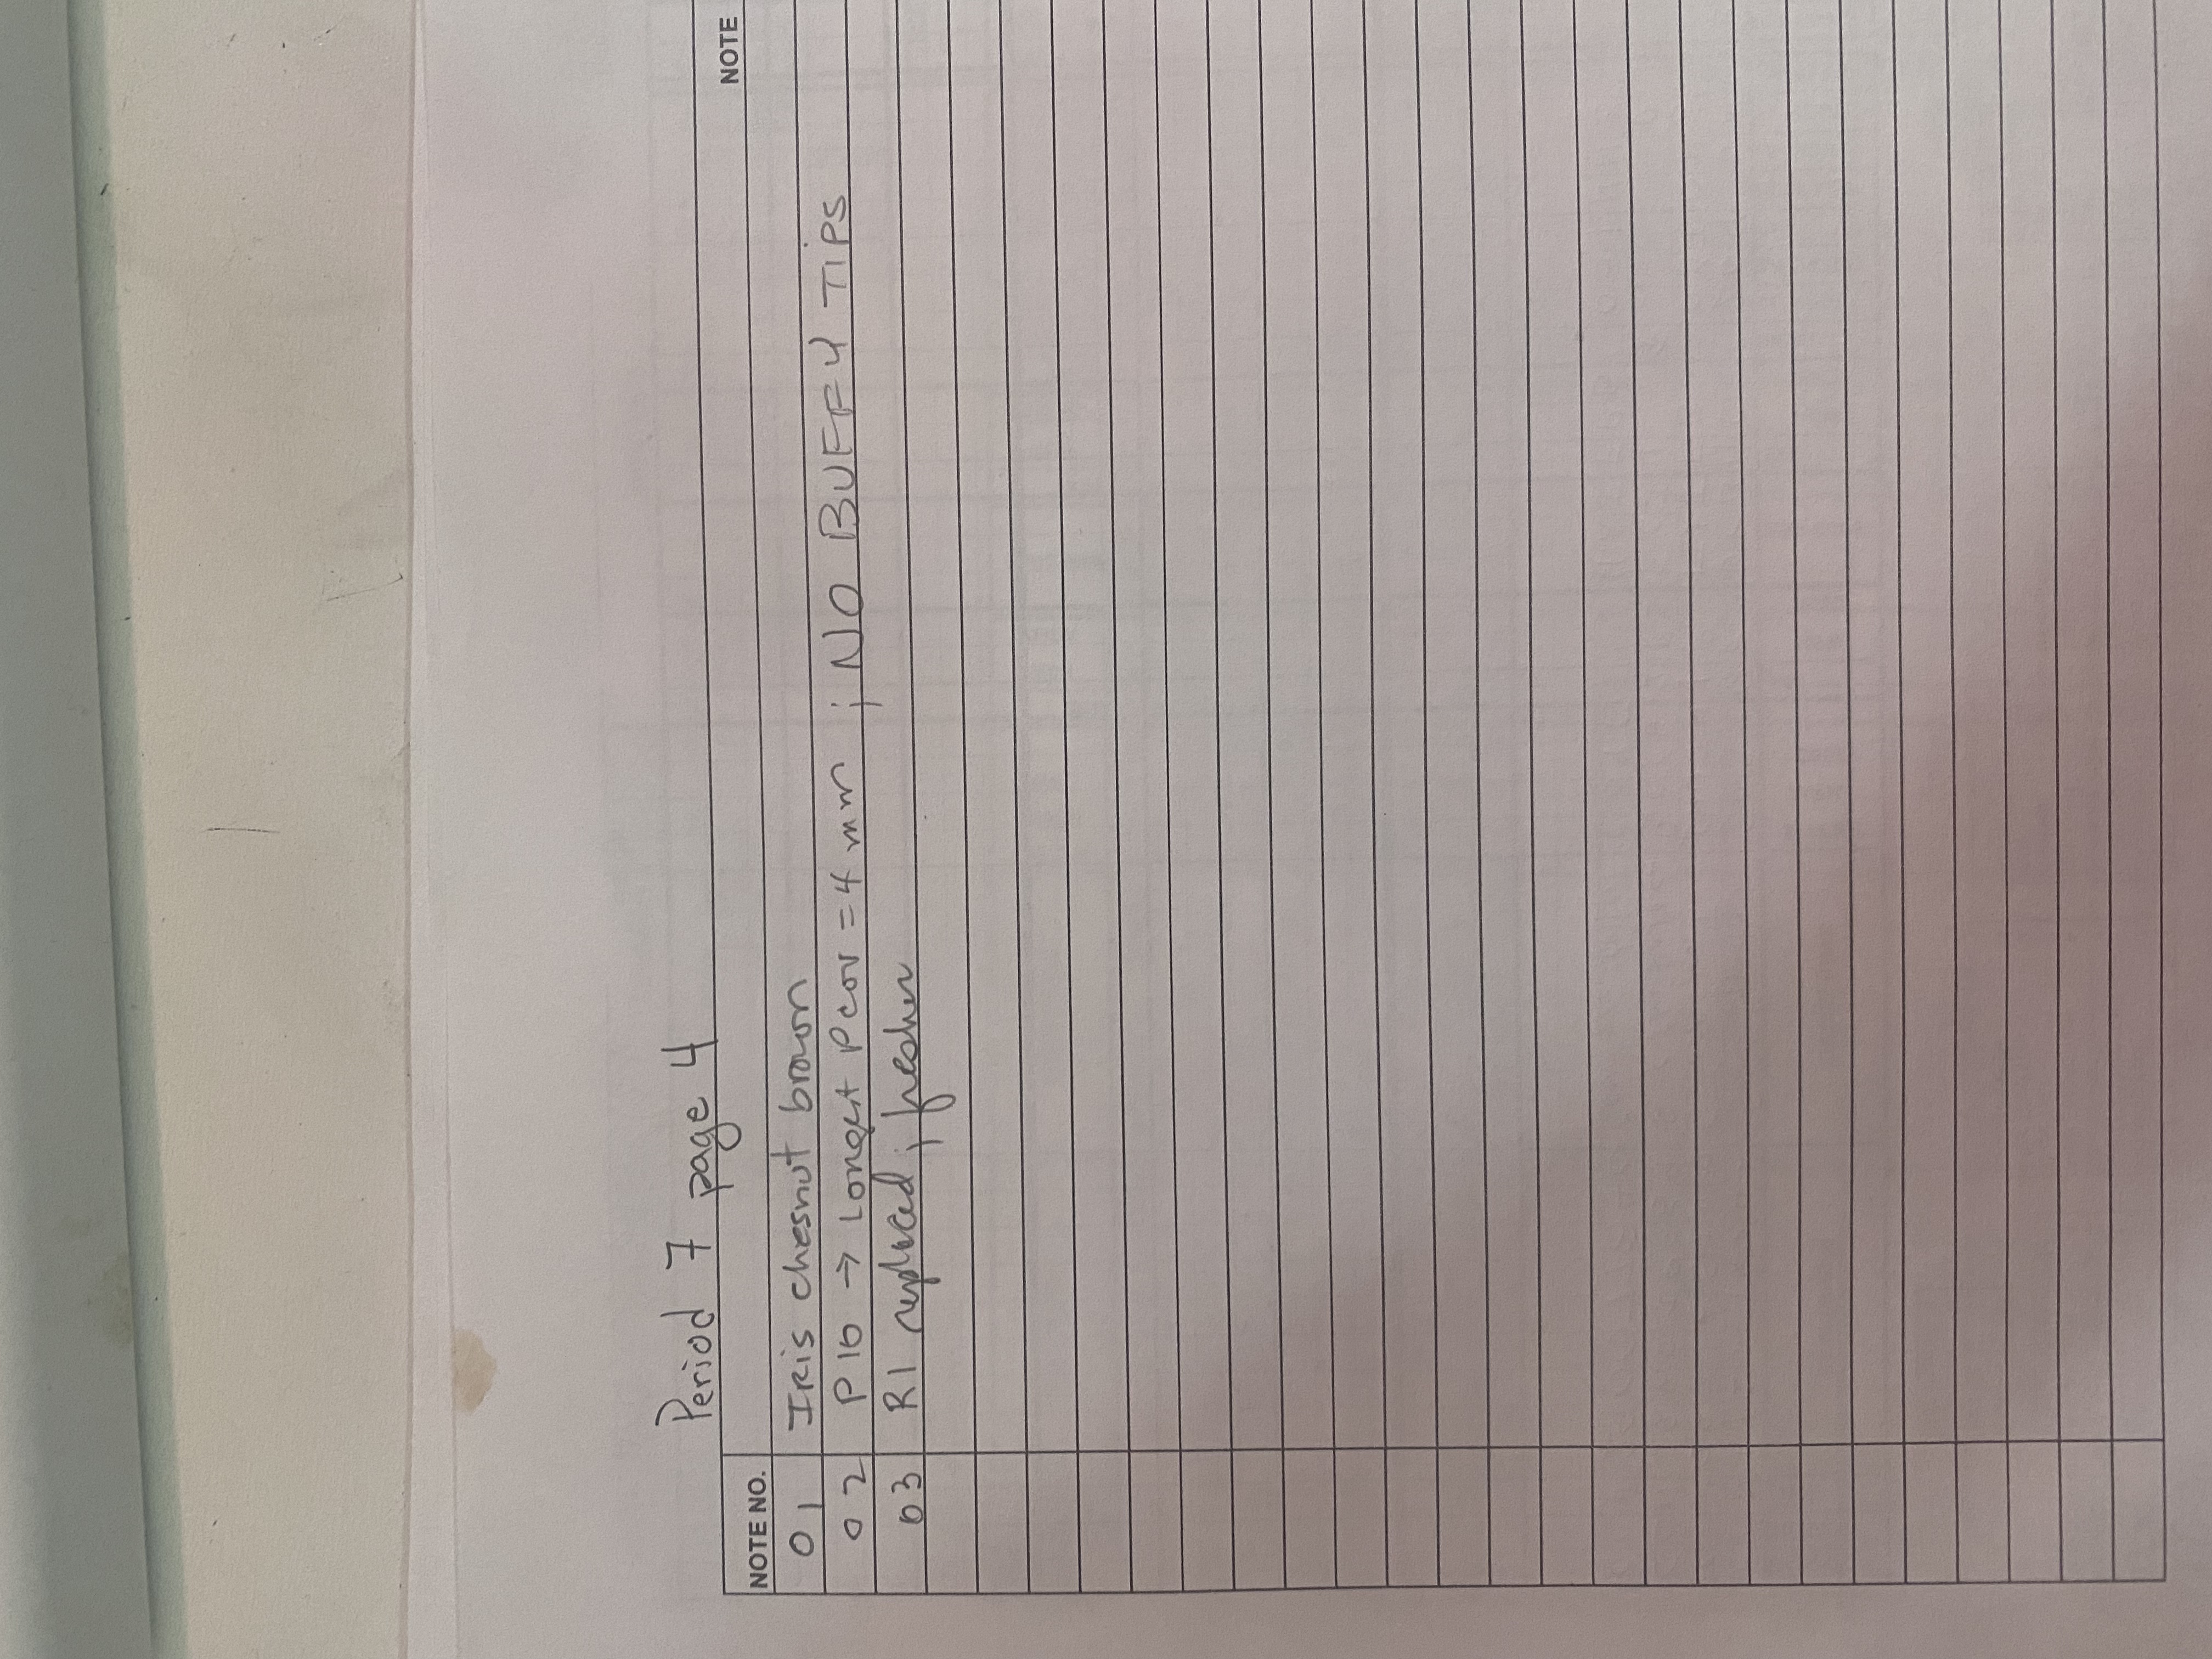 Period 7 page 4
NOTE NO. NOTE
01 IRis chesnut brown
02 P10 → Longest Pcov = 4 mm ; NO BUFFY TIPS
03 R1 replaced; fresher